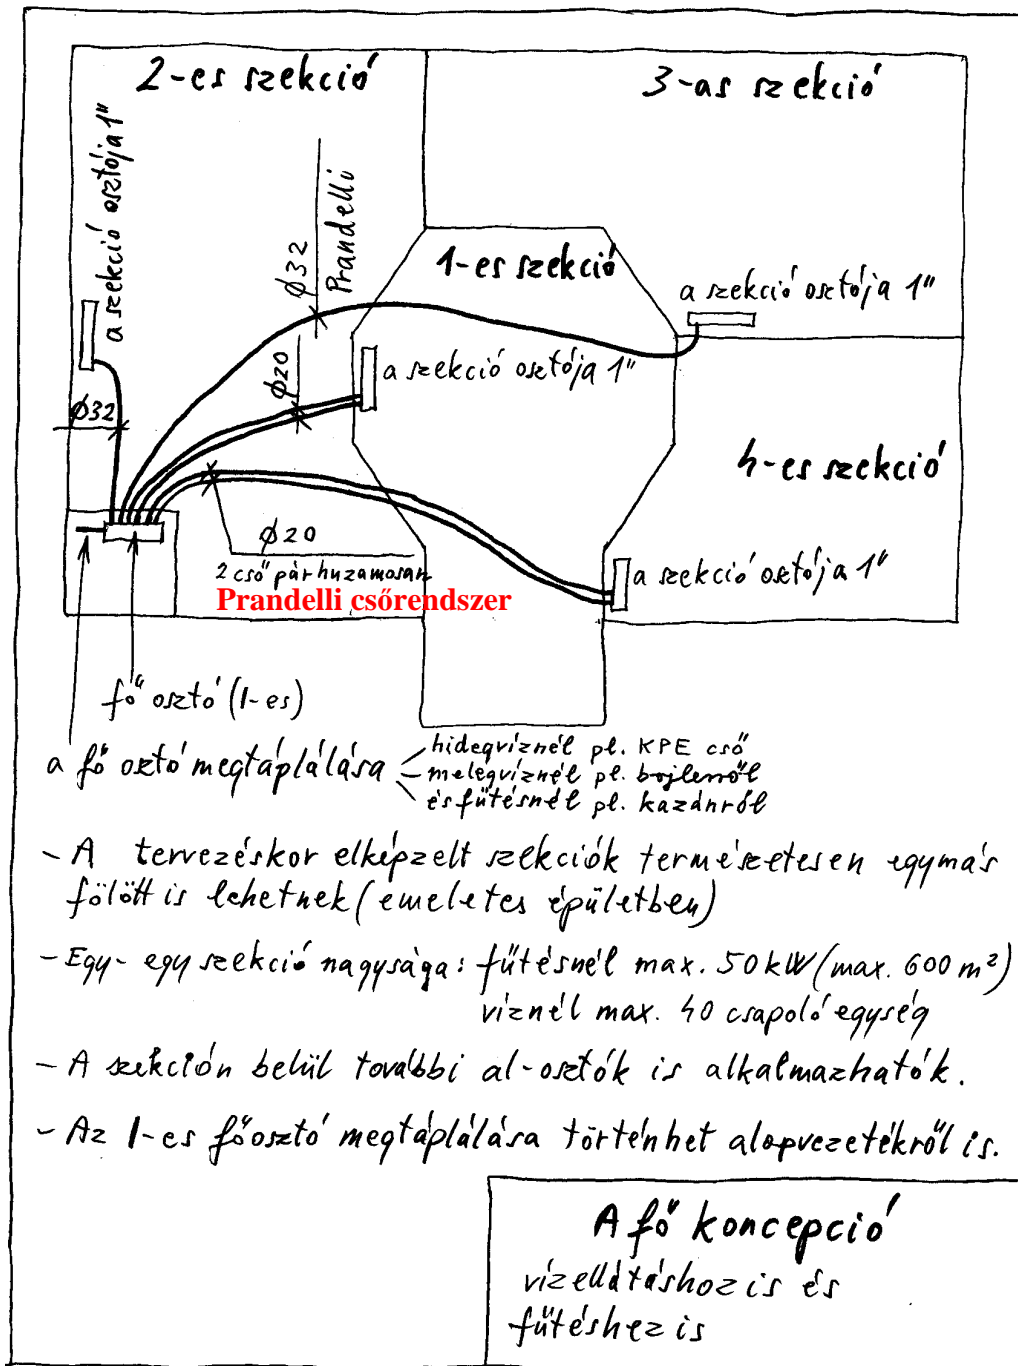 2-es szekció
3-as szekció
a szekció osztója 1"
φ32
Prandelli
1-es szekció
a szekció osztója 1"
φ20
a szekció osztója 1"
φ32
4-es szekció
φ20
2 cső párhuzamosan
Prandelli csőrendszer
a szekció osztója 1"
fő osztó (1-es)
a fő osztó megtáplálása
hidegvíznél pl. KPE cső
melegvíznél pl. bojlerről
és fűtésnél pl. kazánról
- A tervezéskor elképzelt szekciók természetesen egymás
fölött is lehetnek (emeletes épületben)
- Egy-egy szekció nagysága: fűtésnél max. 50 kW (max. 600 m²)
víznél max. 40 csapoló egység
- A szekción belül további al-osztók is alkalmazhatók.
- Az 1-es főosztó megtáplálása történhet alapvezetékről is.
A fő koncepció
vízellátáshoz is és
fűtéshez is